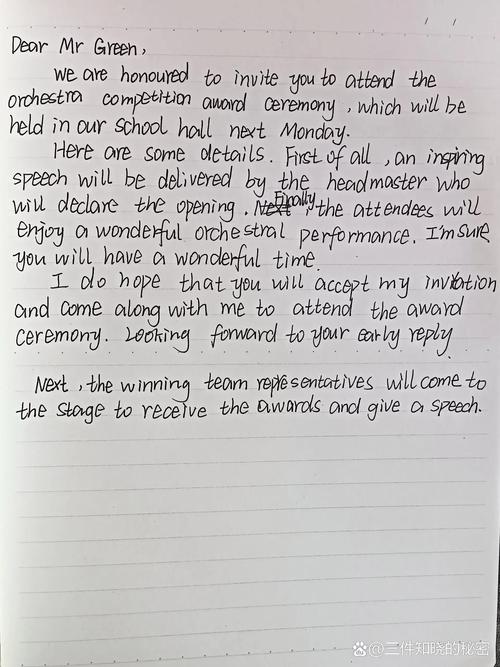 Dear Mr Green,
We are honoured to invite you to attend the
orchestra competition award ceremony, which will be
held in our school hall next Monday.
Here are some details. First of all, an inspiring
speech will be delivered by the headmaster who
will declare the opening. Next Finally, the attendees will
enjoy a wonderful orchestral performance. I'm sure
you will have a wonderful time.
I do hope that you will accept my invitation
and come along with me to attend the award
ceremony. Looking forward to your early reply
Next, the winning team representatives will come to
the stage to receive the awards and give a speech.
@三件知晓的秘密